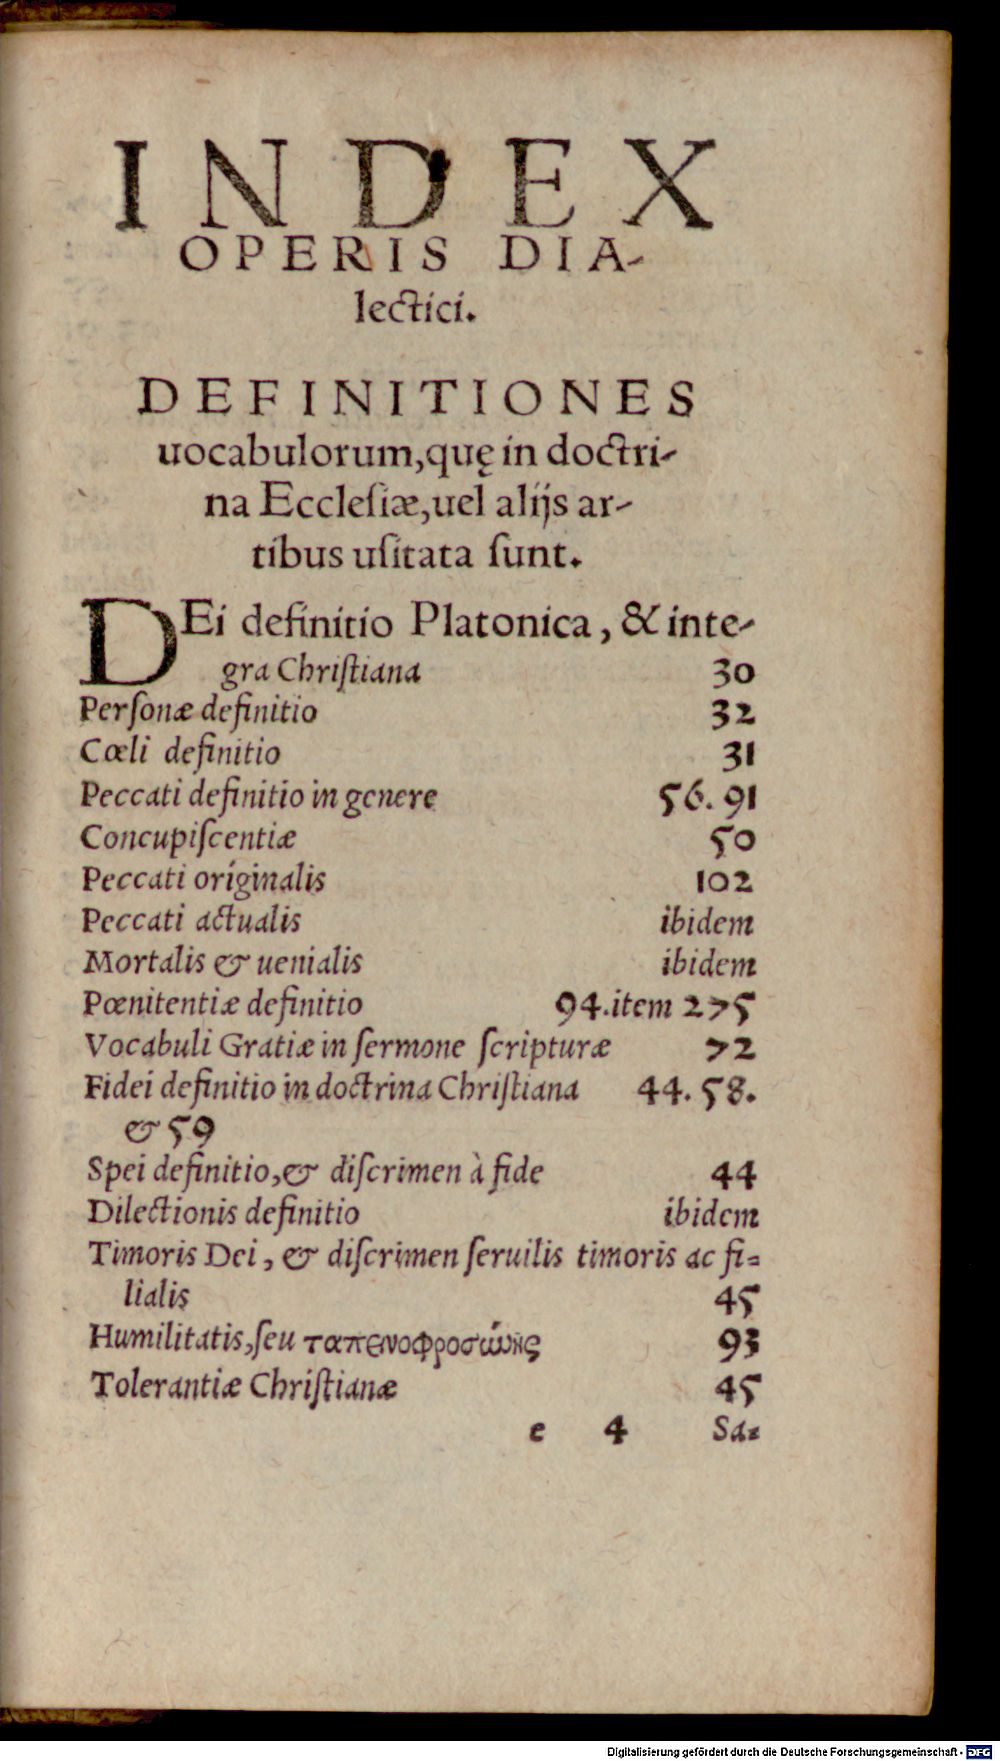 INDEX
OPERIS DIA-
lectici.
DEFINITIONES
uocabulorum, quę in doctri-
na Eccleſiæ, uel alijs ar-
tibus uſitata ſunt.
DEi definitio Platonica, & inte-
gra Chriſtiana 30
Perſonæ definitio 32
Cœli definitio 31
Peccati definitio in genere 56. 91
Concupiſcentiæ 50
Peccati originalis 102
Peccati actualis ibidem
Mortalis & uenialis ibidem
Pœnitentiæ definitio 94. item 275
Vocabuli Gratiæ in ſermone ſcripturæ 72
Fidei definitio in doctrina Chriſtiana 44. 58.
& 59
Spei definitio, & diſcrimen à fide 44
Dilectionis definitio ibidem
Timoris Dei, & diſcrimen ſeruilis timoris ac fi-
lialis 45
Humilitatis, ſeu ταπεινοφροσύνης 93
Tolerantiæ Chriſtianæ 45
e 4 Sa-
Digitalisierung gefördert durch die Deutsche Forschungsgemeinschaft - DFG